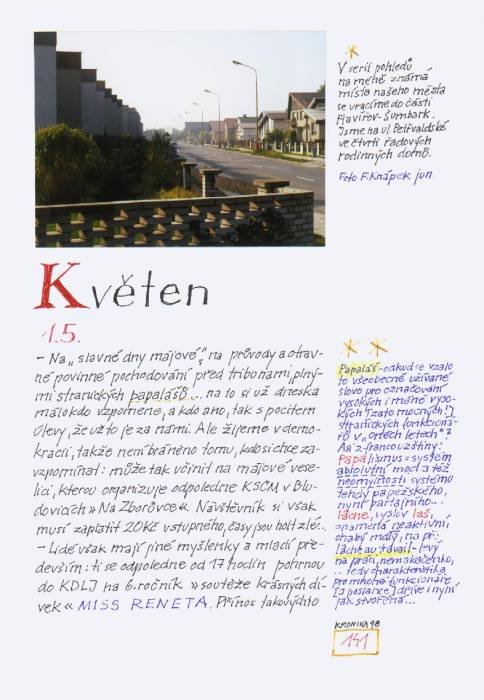 V serii pohledů
na méně známá
místa našeho města
se vracíme do části
Havířov-Šumbark.
Jsme na ul. Petřvaldské
ve čtvrti řadových
rodinných domů.
Foto F. Knápek jun.
Květen
1.5.
– Na „slavné dny májové", na průvody a otrav-
né povinné pochodování před tribunami, plný-
mi stranických papalášů... na to si už dneska
málokdo vzpomene, a kdo ano, tak s pocitem
úlevy, že už to je za námi. Ale žijeme v demo-
kracii, takže není bráněno tomu, kdo si chce za-
vzpomínat: může tak učinit na májové vese-
lici, kterou organizuje odpoledne KSČM v Blu-
dovicích » Na Zborůvce «. Návštěvník si však
musí zaplatit 20 Kč vstupného, časy jsou holt zlé...
– Lidé však mají jiné myšlenky a mladí pře-
devším: ti se odpoledne od 17 hodin pohrnou
do KDLJ na 6. ročník » soutěže krásných dí-
vek « MISS RENETA. Přínos takovýchto
Papaláš - odkud se vzalo
to všeobecně užívané
slovo pro označování
vysokých i méně vyso-
kých [zato mocných!]
stranických funkcioná-
řů v „ortech letech"?
Asi z francouzštiny:
Papalismus = systém
absolutní moci a též
neomylnosti systému
tehdy papežského,
nyní partajního...
lâche, vyslov laš,
znamená neaktivní,
chabý, mdlý, na př.:
lâche au travail - levý
na práci, nemakačenko,
... tedy charakteristika
pro mnohé funkcionáře
[a poslance] dříve i nyní
jak stvořená...
KRONIKA 98
141